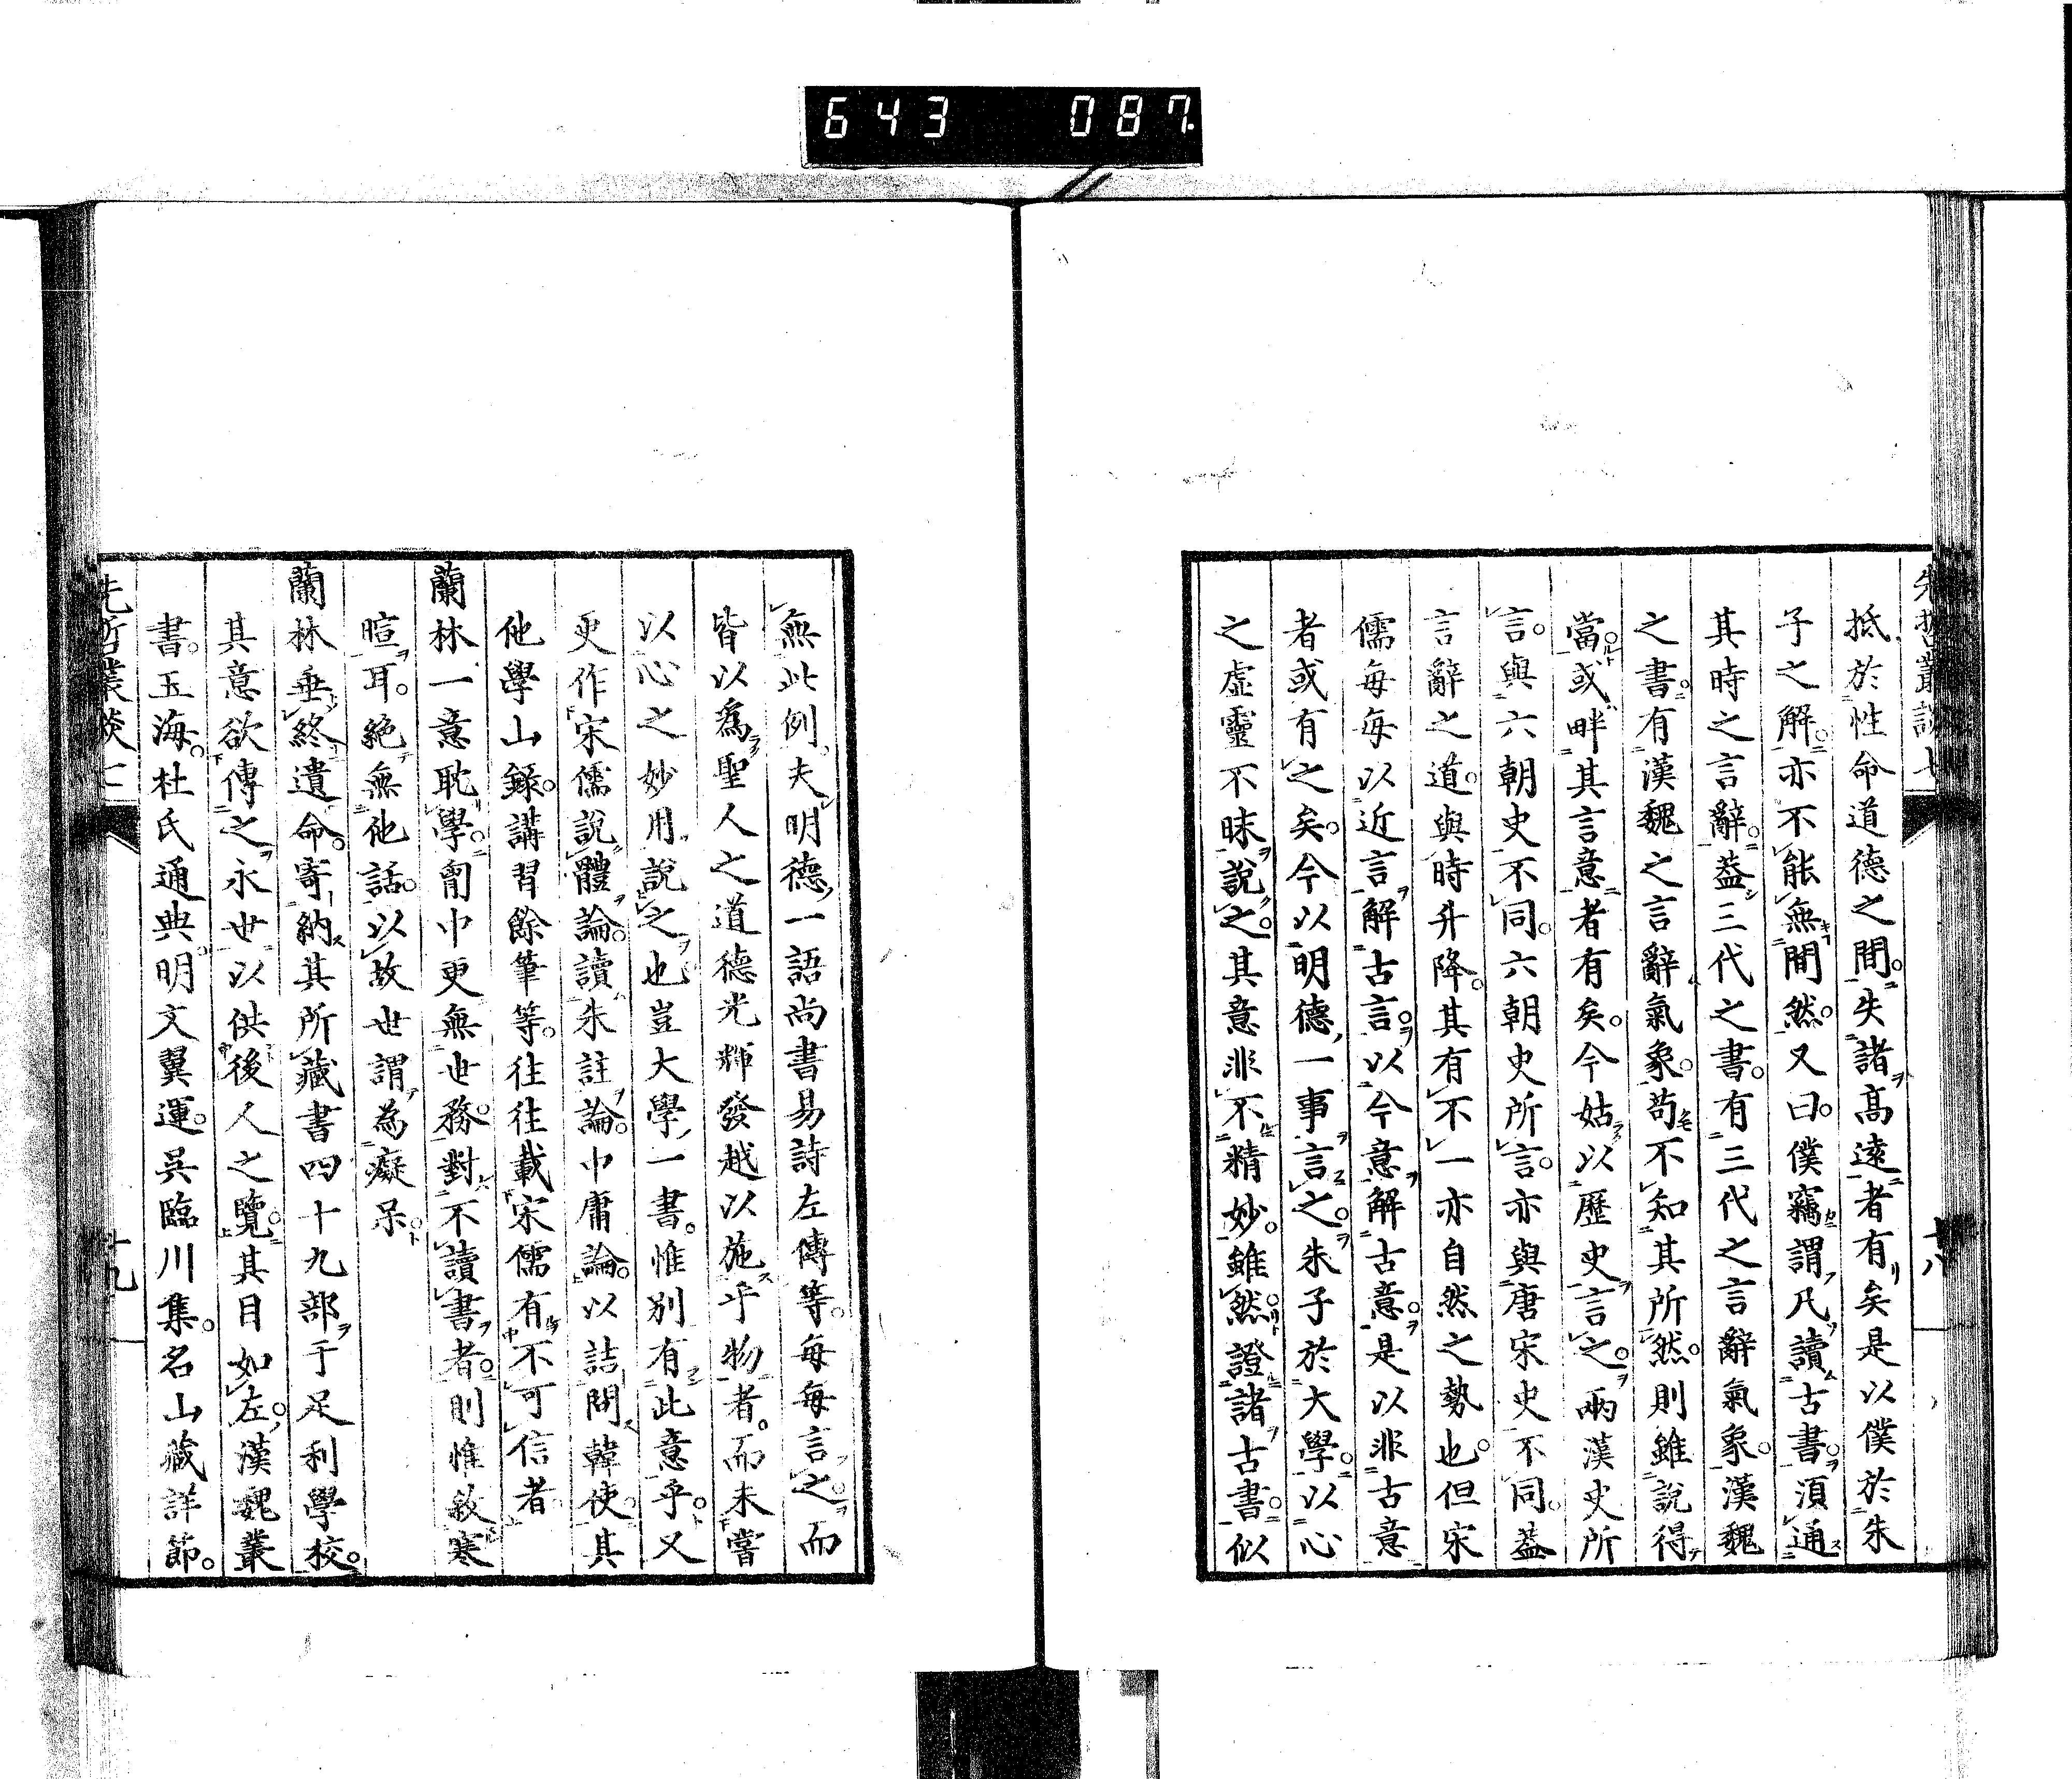 643 087
先哲叢談七
十八
抵於性命道德之間。失諸高遠者有矣是以僕於朱
子之解。亦不能無間然。又曰。僕竊謂凡讀古書。須通
其時之言辭。蓋三代之書。有三代之言辭氣象。漢魏
之書。有漢魏之言辭氣象。苟不知其所然。則雖說得
當。或畔其言意者有矣。今姑以歷史言之。兩漢史所
言。與六朝史不同。六朝史所言。亦與唐宋史不同。蓋
言辭之道。與時升降。其有不一亦自然之勢也。但宋
儒每每以近言解古言。以今意解古意。是以非古意
者或有之矣。今以明德一事言之。朱子於大學。以心
之虛靈不昧說之。其意非不精妙。雖然。證諸古書。似
無此例。夫明德一語尚書易詩左傳等。每每言之。而
皆以爲聖人之道德光輝發越以施乎物者。而未嘗
以心之妙用說之也豈大學一書。惟別有此意乎。又
更作宋儒說體論。讀朱註論。中庸論。以詰問韓使。其
他學山錄。講習餘筆等。往往載宋儒有不可信者
蘭林一意耽學。胷中更無世務。對不讀書者。則惟敘寒
暄耳。絕無他話。以故世謂爲癡呆。
蘭林垂終遺命。寄納其所藏書四十九部于足利學校。
其意欲傳之永世以供後人之覽。其目如左。漢魏叢
書。玉海。杜氏通典。明文翼運。吳臨川集。名山藏詳節。
先哲叢談七
十九